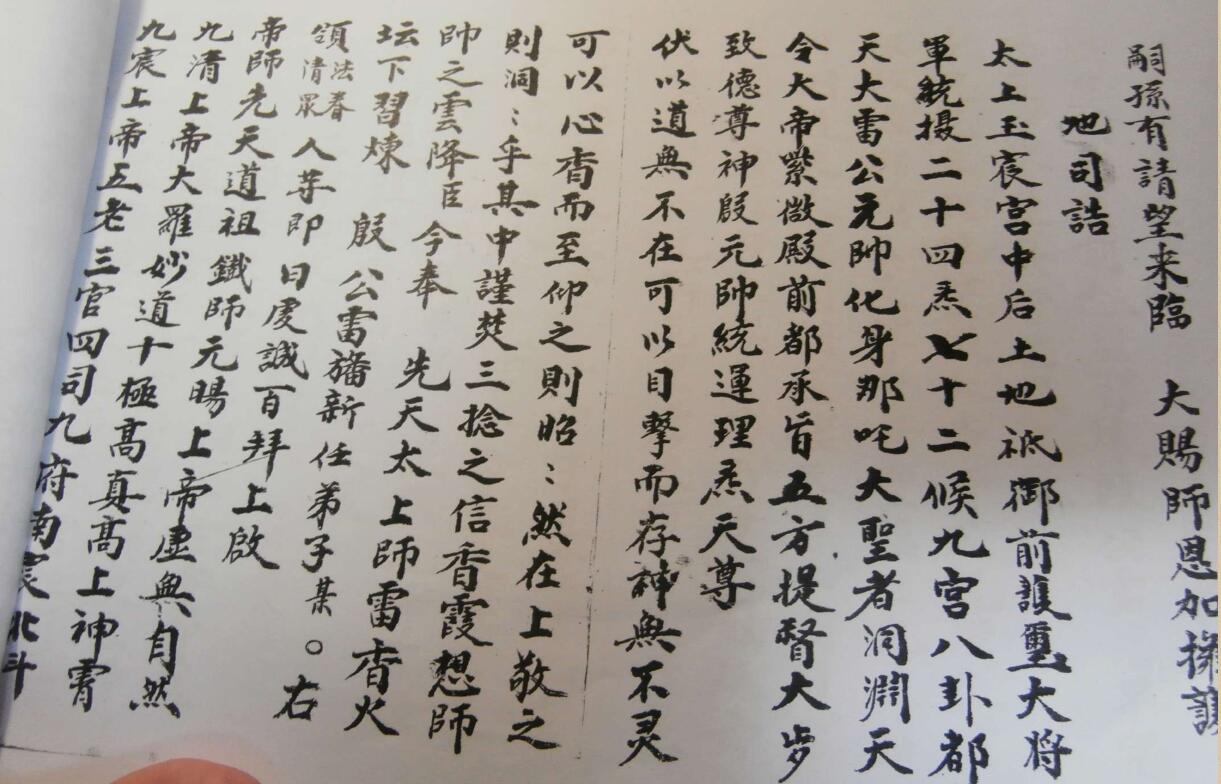 嗣孫有請望来臨 大賜師恩加擁護
地司誥
太上玉宸宫中后土地祇御前護璽大将
軍統摄二十四炁七十二候九宫八卦都
天大雷公元帥化身那吒大聖者洞淵天
令大帝紫微殿前都承旨五方提督大步
致德尊神殷元帥統運理炁天尊
伏以道無不在可以目擊而存神無不灵
可以心香而至仰之則昭：然在上敬之
則洞：乎其中謹焚三捻之信香霞想師
帥之雲降臣 今奉 先天太上師雷香火
坛下習煉 殷公雷旛新任弟子某。右
領法眷清眾人等即日虔誠百拜上啟
帝師先天道祖鐵師元暘上帝虚無自然
九清上帝大羅妙道十極高真高上神霄
九宸上帝五老三官四司九府南宸北斗